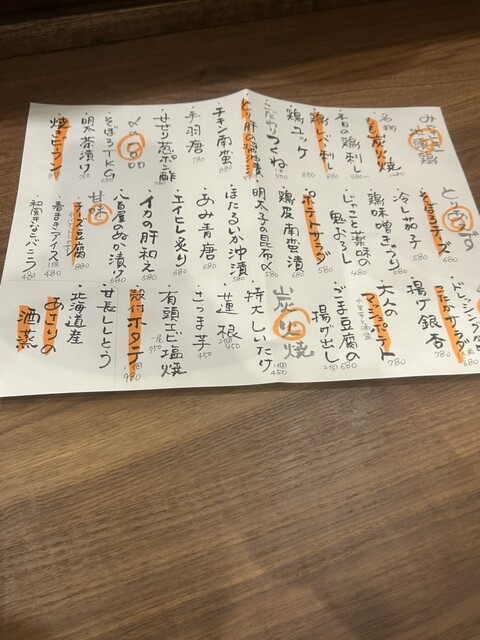 名物
もも炭火焼
本日の鶏刺し
鶏レバー刺し
鶏ユッケ
こだわりつくね
とり肝の醤油漬
チキン南蛮 880
手羽唐 780
せせり葱ポン酢
〆の一品
そぼろTKG 650
明太茶漬け
焼きビーフン
とりあえず
そぼろチーズ 680
冷し茄子 580
鶏味噌きゅうり
じゃこと薬味の
鬼おろし
ポテトサラダ
鶏皮南蛮漬
明太子の昆布〆
ほたるいか沖漬 680
あみ青唐 680
エイヒレ炙り 680
イカの肝和え 580
八百屋のぬか漬け 680
甘味
チーズ豆腐 880
春まきアイス
和風きなこパンニコッタ 480
揚げ銀杏 780
大人の
マッシュポテト 780
ごま豆腐の
揚げ出し 2個 600
炭火焼
特大しいたけ 1個 450
蓮根 2個 450
さつま芋 450
有頭エビ塩焼 一尾 950
殻付ホタテ 1個 980
甘長ししとう
北海道産
あさりの
酒蒸